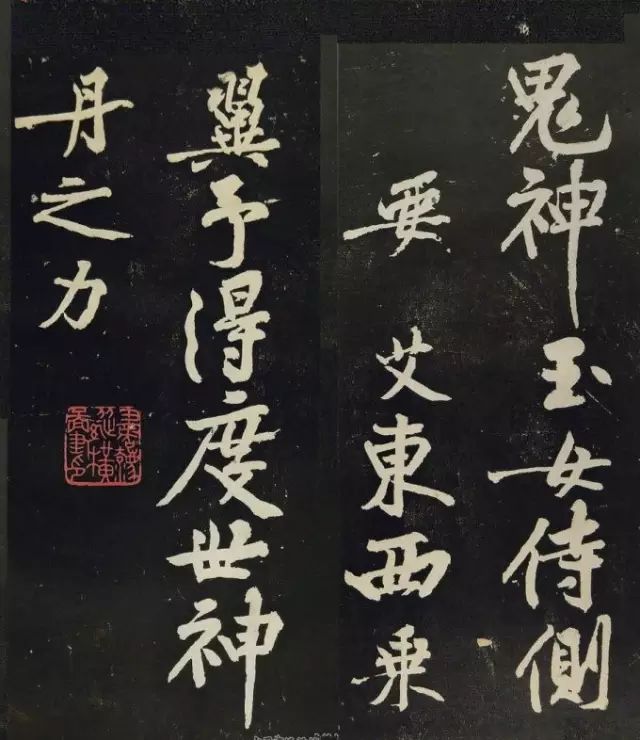 鬼神玉女侍側
要 艾東西乗
翼予得度世神
丹之力